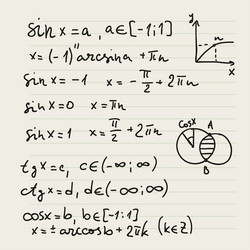 sin x = a , a∈[-1;1]
x = (-1)ⁿ arcsin a + πn
sin x = -1 x = - π/2 + 2πn
sin x = 0 x = πn
sin x = 1 x = π/2 + 2πn
tg x = c, c∈(-∞;∞)
ctg x = d, d∈(-∞;∞)
cos x = b, b∈[-1;1]
x = ± arccos b + 2πk (k∈Z)
y
n
x
Cosx
A
B